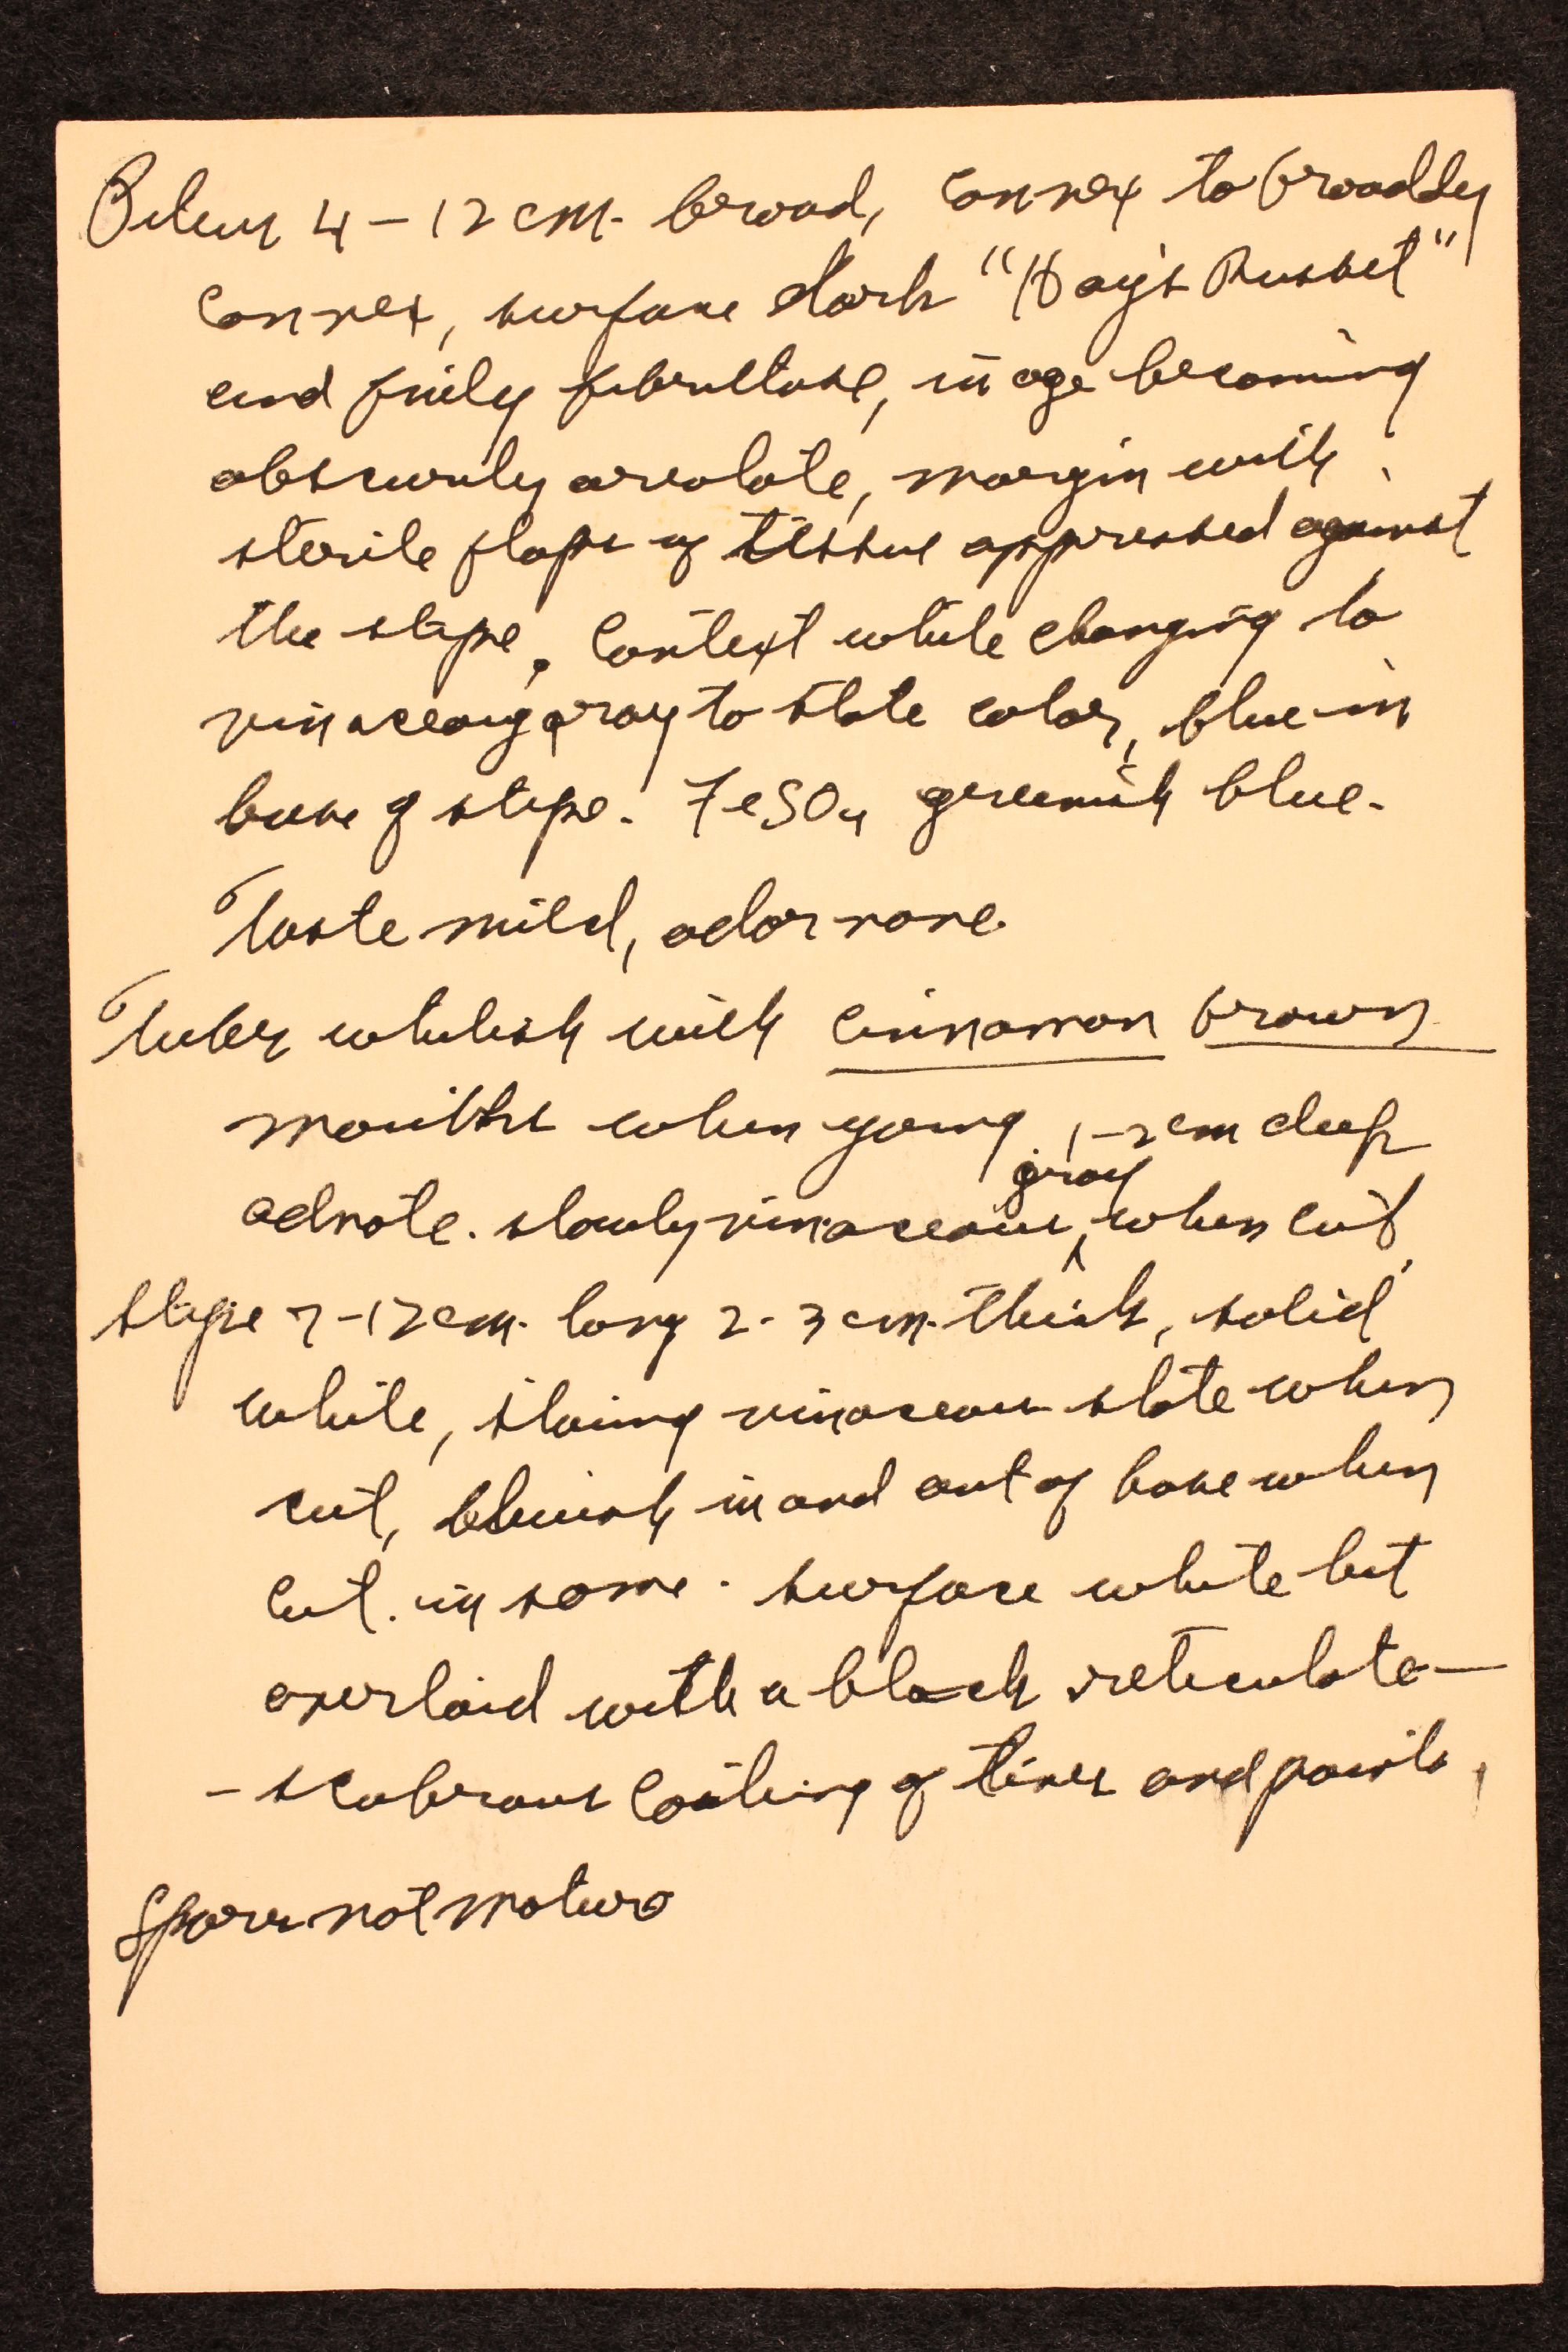 Pileus 4-12 cm. broad, convex to broadly
convex, surface dark "Hay's Russet"
and finely fibrillose, in age becoming
obscurely areolate, margin with
sterile flaps of tissue appressed against
the stipe. Context white changing to
vinaceous gray to slate color, blue in
base of stipe. FeSO4 greenish blue.
Taste mild, odor none.
Tubes whitish with cinnamon brown
mouths when young, 1-2 cm deep
adnate. slowly vinaceous gray, when cut.
Stipe 7-12 cm. long 2-3 cm. thick, solid
white, staing vinaceous slate when
cut, bluish in and out of base when
cut. in some. surface white but
overlaid with a black reticulate-
-scabrous coating of lines and points,
Spores not mature